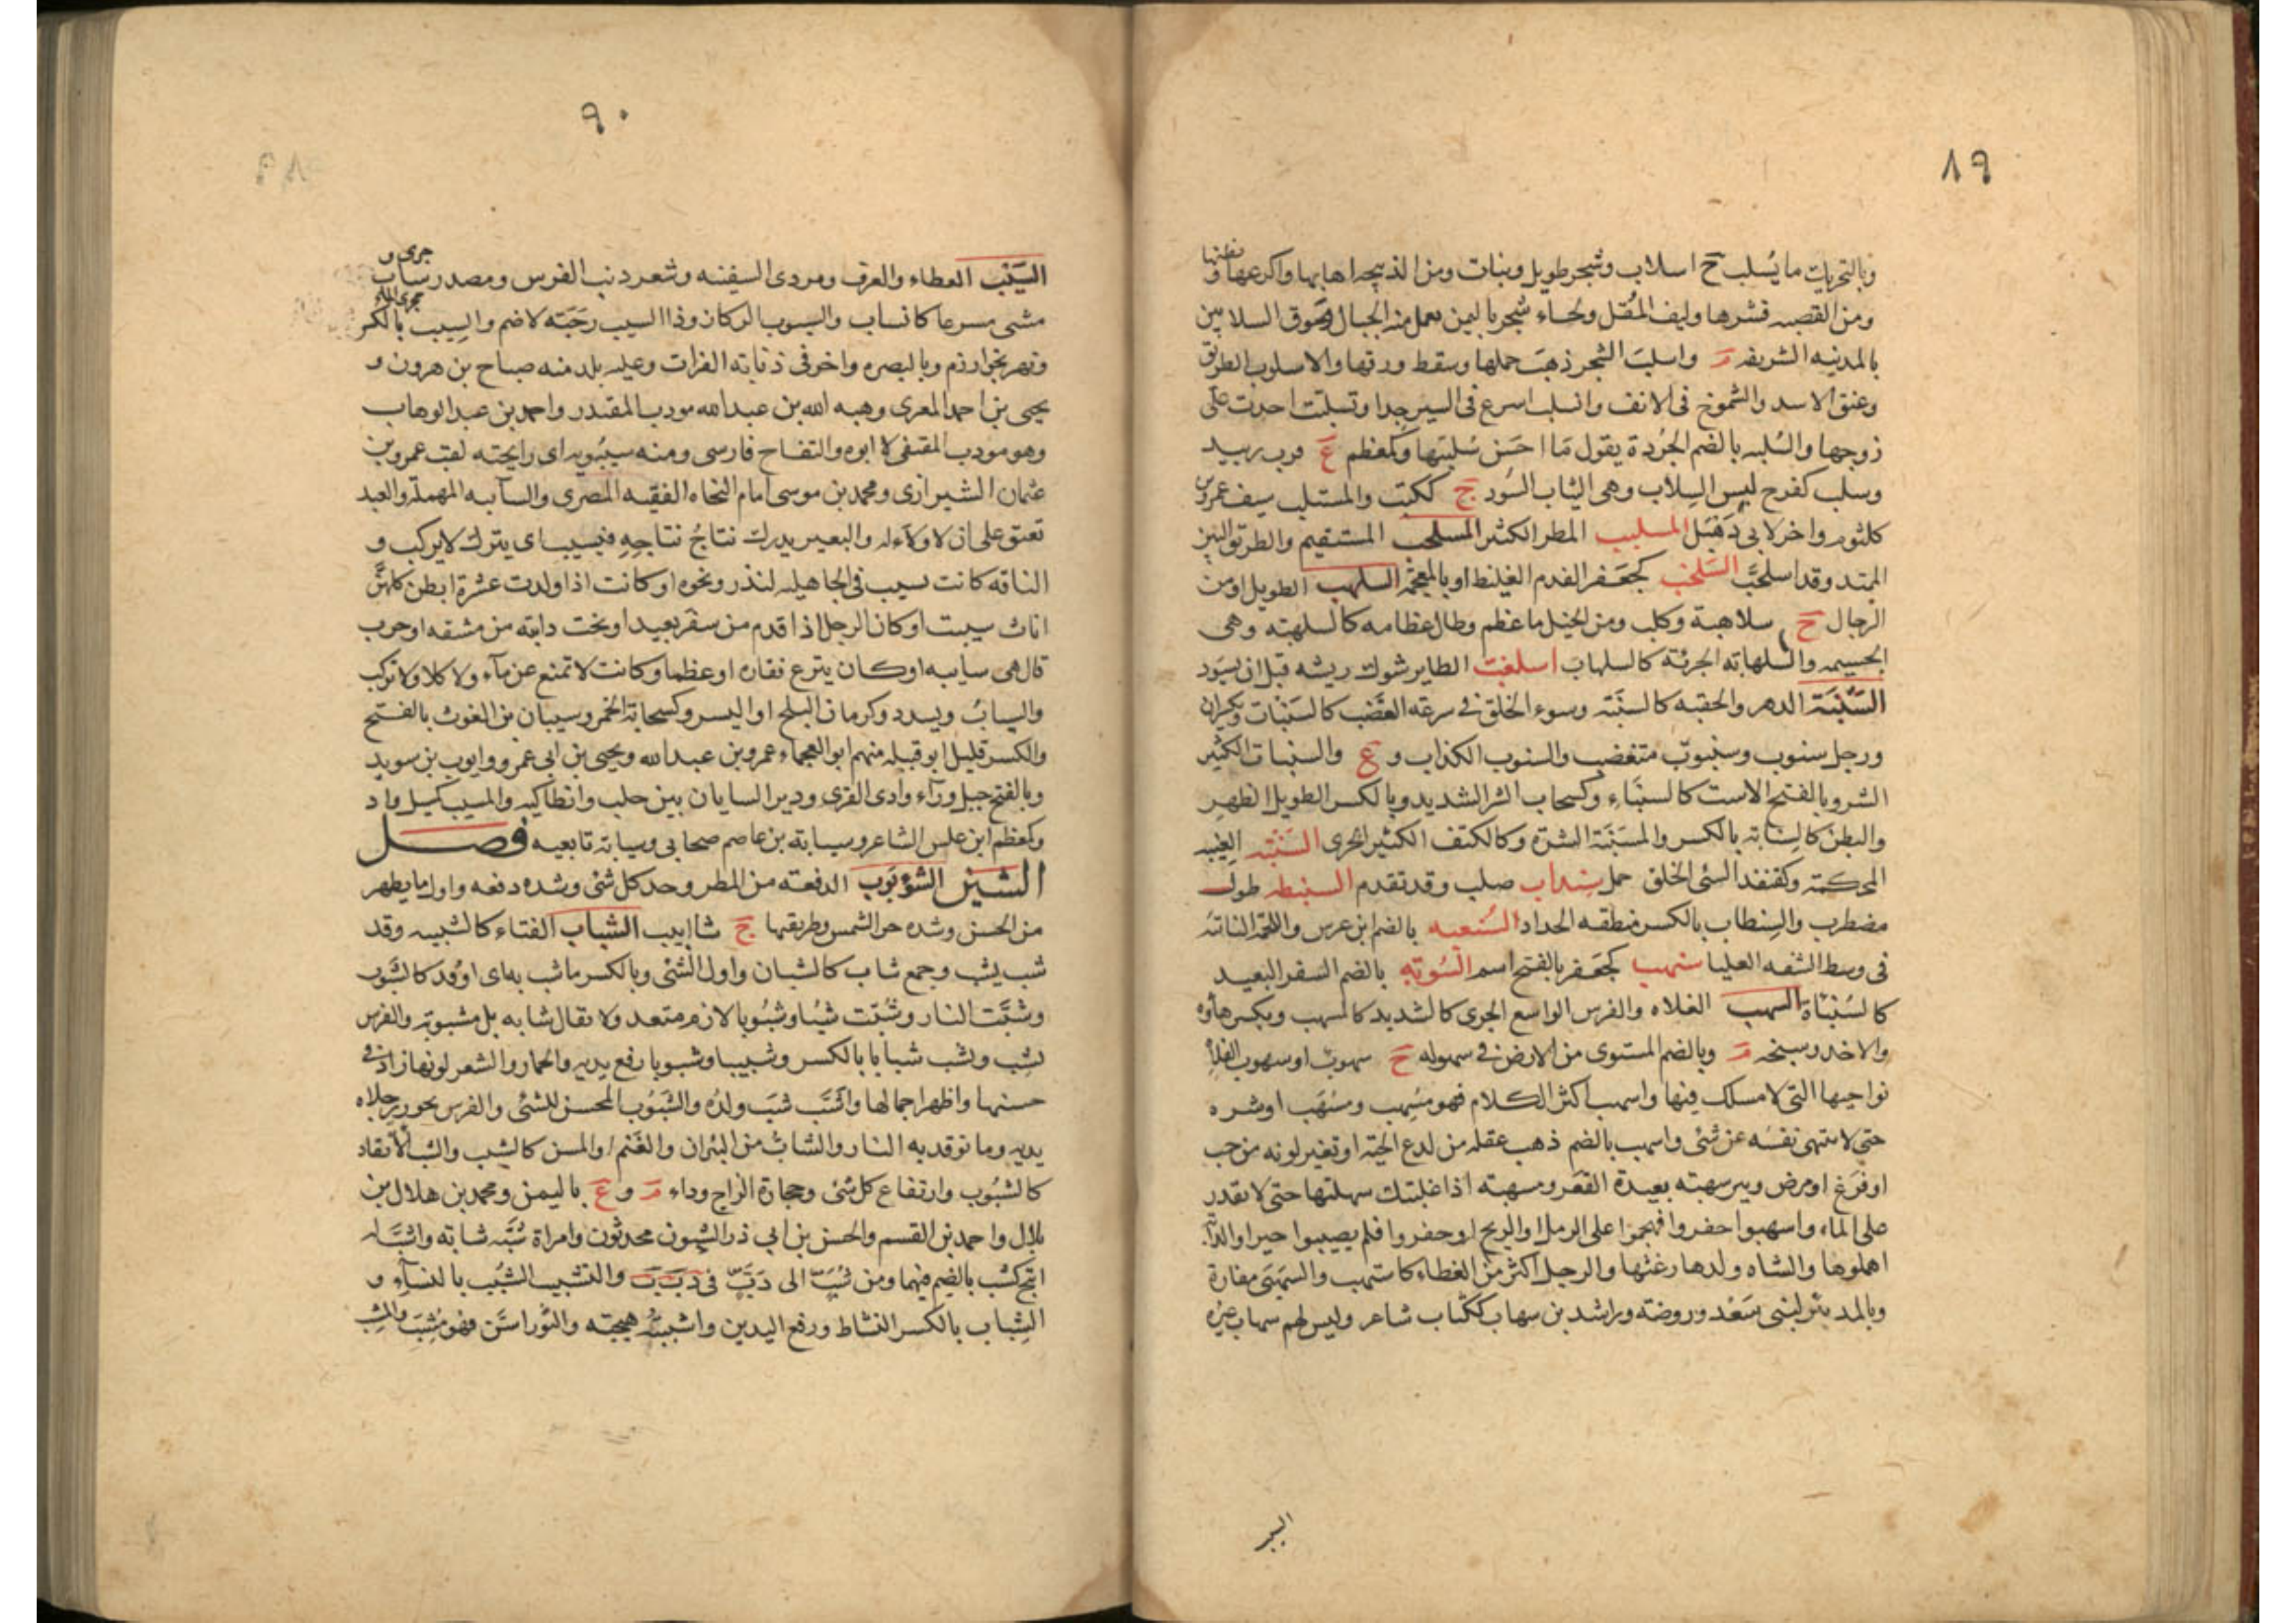 ٨٩
وبالتحريك ما يُسلب ج اسلاب وشجر طويل ونبات ومن الذبيحه اهابها واكرعها وبطنها و
ومن القصبه قشرها وليف المُقل ولحاء شجر باليمن يعمل منه الحبال وسوق السلابين
بالمدينه الشريفه م واسلب الشجر ذهب حملها وسقط ورقها والاسلوب الطريق
وعنق الاسد والشموخ فى الانف وانسلب اسرع فى السير جدا وتسلبت احدت على
زوجها والسُلبه بالضم الجُردة يقول مَا احسَن سُلبتها وكمعظم ع قرب زبيد
وسلب كفرح لبس السِلاب وهى الثياب السُود ج ككتب والمستلب سيف عمرو بن
كلثوم واخر لابى دَهبَل المسليب المطر الكثير المسلحب المستقيم والطريق البين
الممتد وقد اسلحبَّ السَلخب كجَعفر الفدم الغليظ او بالمعجمة السلهب الطويل او من
الرجال ج سلاهبة وكلب ومن الخيل ما عظم وطال عظامه كالسلهبة وهى
الجسيمه والسلهابة الجريئة كالسلهاب اسلغبت الطاير شوك ريشه قبل ان يسود
السَّنْبَة الدهر والحقبه كالسنبَتة وسوء الخلق فى سرعه الغضب كالسَنبات ويكسران
ورجل سنوب وسنبوت متغضب والسنوب الكذاب و ع والسنبات الكثير
الشر وبالفتح الاست كالسنبَاء وكسحاب الشر الشديد وبالكسر الطويل الظهر
والبطن كالسِنابة بالكسر والمسنَبَة الشرّة وككتف الكثير الجرى السَنتبة الغيبه
المحكمة وكقنفد السئ الخلق جمل سِنداب صلب وقد تقدم السنبطه طول
مضطرب والسِنطاب بالكسر مطقه الحداد السُنعبه بالضم ابن عرس واللحمة الناتئه
فى وسط الشفه العليا سنهب كجَعفر بالفتح اسم السُوبَة بالضم السفر البعيد
كالسُنباة السهب الفلاه والفرس الواسع الجرى كالشديد كالمسهب ويكسر هاؤه
والاخذ وسبخه م وبالضم المستوى من الارض فى سهوله ج سهوب او سهوب الفلاة
نواحيها التى لا مسلك فيها واسهب اكثر الكلام فهو مُسهِب ومسهَب او شره
حتى لا تنتهى نفسَه عن شئ واسهب بالضم ذهب عقله من لدغ الحية او تغير لونه من حب
او فزع او مرض وبير سهبه بعيدة القعر ومسهبه اذا غلبتك سهلتها حتى لا تقدر
على الماء واسهبوا حفروا فهجموا على الرمل او الريح او حفروا فلم يصيبوا خيرا والدابة
اهملوها والشاه ولدها رغثها والرجل اكثر من العطاء كاستهب والسَهبَى مفازة
وبالمد بئر لبنى سَعْد وروضة وراشد بن سهاب ككتاب شاعر وليس لهم سهاب غيره
السيب
٩٠
السَّيْب العطاء والعرف ومردى السفينه وشعر ذنب الفرس ومصدر ساب جرى و
مشى مسرعا كانساب والسيوب الركاز وذا السيب رَحَبَة لاضم والسِيب بالكسر مجرى الماء
ونهر بخوارزم وبالبصره واخر فى ذنابة الفرات وعليه بلد منه صباح بن هرون و
يحيى بن احمد المعرى وهبه الله بن عبد الله مودب المقتدر واحمد بن عبد الوهاب
وهو مودب المقتفى لا ابوه والتفاح فارسى ومنه سيبُويه اى رايحته لقب عمرو بن
عثمان الشيرازى ومحمد بن موسى امام النحاه الفقيه المصرى والسآيبه المهملة والعبد
تعتق على ان لا ولاء له والبعير يدرك نتاجُ نتاجِهِ فيسيب اى يترك لا يركب و
الناقه كانت تسيب فى الجاهيليه لنذر ونحوه او كانت اذا ولدت عشرة ابطن كلهن
اناث سيبت او كان الرجل اذا قدم من سفر بعيد او نجت دابته من مشقه او حرب
قال هى سايبه او كان ينزع فقاره او عظما وكانت لا تمنع عن مآء ولا كلا ولا تركب
والسيابُ ويسدد وكرمان البلح او البسر وكسحابة الخمر وسيبان بن الغوث بالفتح
والكسر قليل ابو قبيله منهم ابو العجماء عمرو بن عبد الله ويحيى بن ابى عمرو وايوب بن سويد
وبالفتح جبل ورآء وادى القرى ودير السابان بين حلب وانطاكيه والمسيب كسيل واد
وكمعظم ابن علس الشاعر وسيابة بن عاصم صحابى وسيابة تابعيه فصل
الشين الشوءبُوب الدفعة من المطر وحد كل شئ وشده دفعه واول ما يظهر
من الحسن وشده حر الشمس وطريقتها ج شاابيب الشباب الفتاء كالشبيبه وقد
شب يشب وجمع شاب كالشبان واول الشئ وبالكسر ما شب به اى اوقد كالشَبوب
وشبَّت النار وشُبّت شبًا وشُبُوبا لازم متعد ولا يقال شابه بل مشبوبة والفرس
يشِب ويشُب شبابا بالكسر وشبيبا وشبوبا رفع يديه والخمار والشعر لونها زاد فى
حسنها واظهرا جمالها واشَبَّ شبَّ ولدُه والشَبُوب المحسن للشئ والفرس تجوز رجلاه
يديه وما توقد به النار والشابُّ من الثيران والغَنم او المسن كالشبب والشَب الايقاد
كالشبُوب وارتفاع كل شئ وحجارة الزاج وداء م و ع باليمن ومحمد بن هلال بن
بلال واحمد بن القسم والحسن بن ابى ذر الشبون محدثون وامراة شبَّه شابة واشبَّ له
اتيح كشب بالضم فيهما ومن شُبّ الى دَبَّ فى دبب والتشبيب النسيب بالنساء و
الشِباب بالكسر النشاط ورفع اليدين واشببته هيجته والثَور اسن فهو مُشِب والمِشب